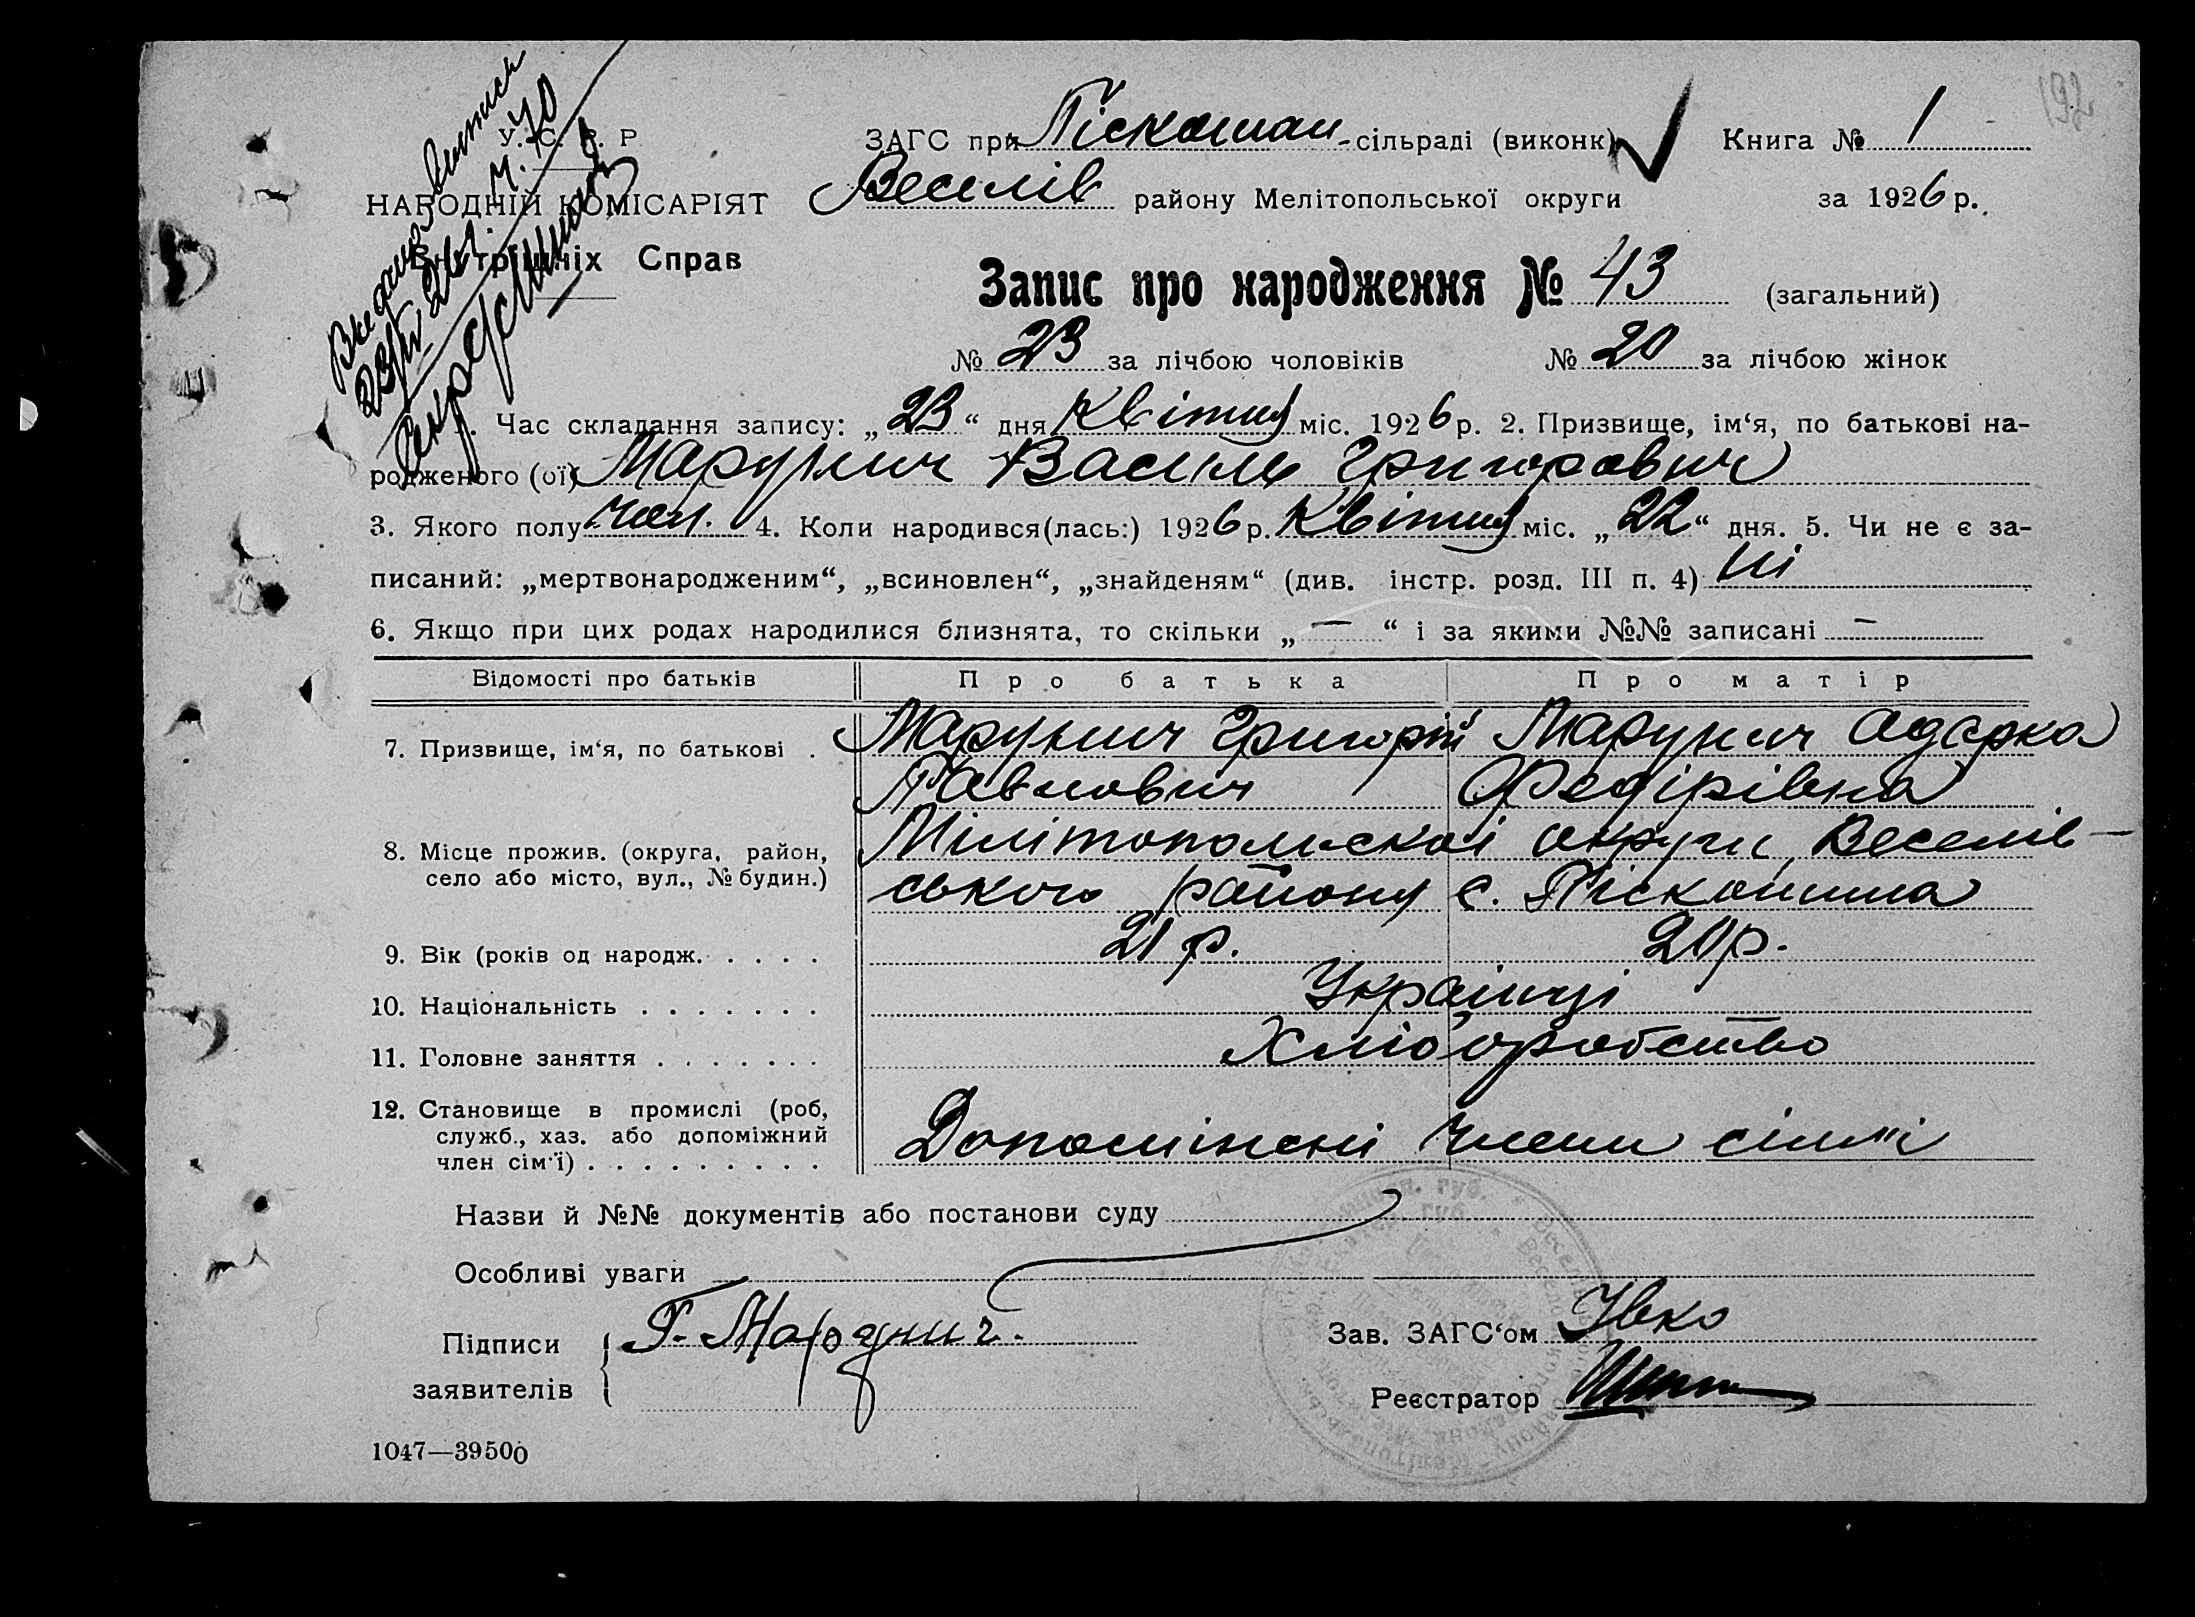 192
У. С. Р. Р
НАРОДНІЙ КОМІСАРІЯТ
Внутрішніх Справ
Видано витись
23/IV 26 р. ч. 70
ЗАГС при Піскошан -сільраді (виконк) Книга № 1
Веселів району Мелітопольської округи за 1926 р.
Запис про народження № 43 (загальний)
№ 23 за лічбою чоловіків № 20 за лічбою жінок
1. Час складання запису: „23“ дня Квітня міс. 1926 р. 2. Призвище, ім‘я, по батькові на-
родженого (ої) Марунич Василь Григорович
3. Якого полу чол. 4. Коли народився(лась:) 1926 р. Квітня міс. „22“ дня. 5. Чи не є за-
писаний: „мертвонародженим“, „всиновлен“, „знайденям“ (див. інстр. розд. III п. 4) Ні
6. Якщо при цих родах народилися близнята, то скільки „—“ і за якими №№ записані —
Відомості про батьків Про батька Про матір
7. Призвище, ім‘я, по батькові . Марунич Григорій Марунич Одарка
Павлович Федірівна
8. Місце прожив. (округа, район, Мілітопольскої округи, Веселів-
село або місто, вул., № будин.) ського району с. Піскошина
9. Вік (років од народж. . . . . 21 р. 20 р.
10. Національність . . . . . . . Українці
11. Головне заняття . . . . . . . Хліборобство
12. Становище в промислі (роб,
служб., хаз. або допоміжний
член сім‘ї) . . . . . . . . . Допоміжні члени сімї
Назви й №№ документів або постанови суду
Особливі уваги
Підписи Г. Марунич. Зав. ЗАГС‘ом Ївко
заявителів Реєстратор
1047—39500